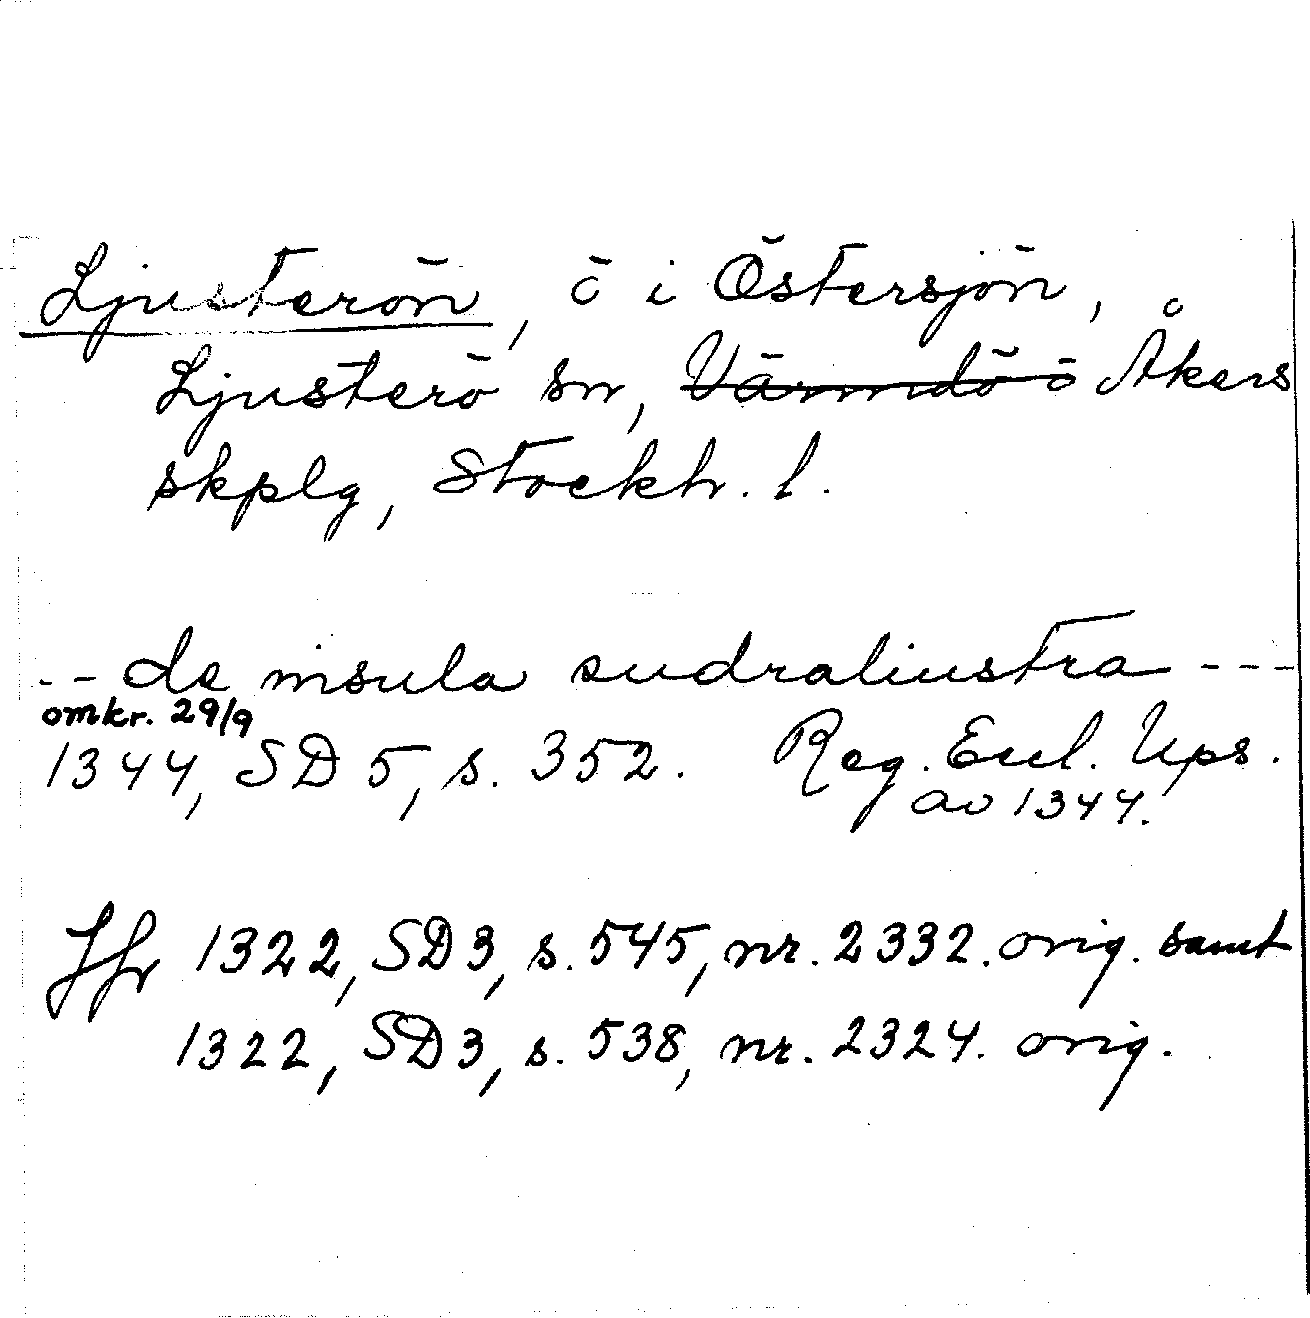 Ljusterön, ö i Östersjön,
Ljusterö sn, Värmdö ö Åkers
skplg, Stockh. l.
-- de insula sudraliustra ---
omkr. 29/9
1344, SD 5, s. 352. Reg. Eccl. Ups.
av 1344.
Jfr 1322, SD3, s. 545, nr. 2332. orig. samt
1322, SD3, s. 538, nr. 2324. orig.